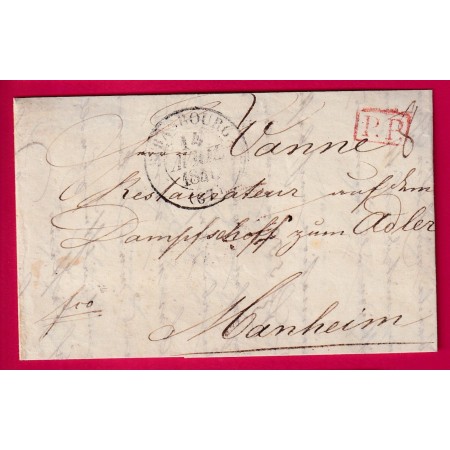 STRASBOURG
14
(67)
P.P.
Vanne
Restaurateur auf dem
Dampfschoff zum Adler
fco
Manheim